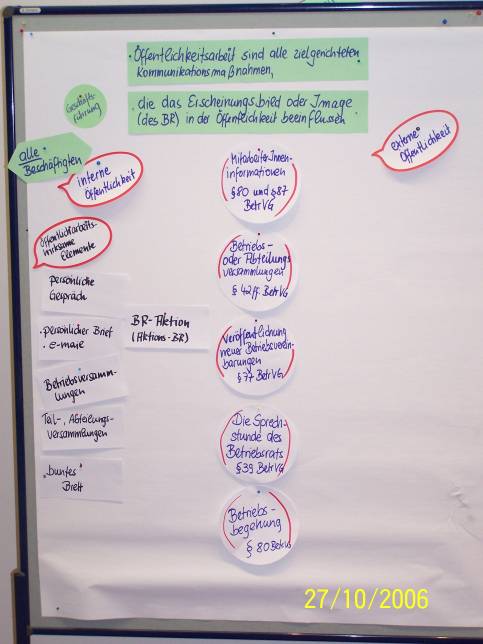 • Öffentlichkeitsarbeit sind alle zielgerichteten
Kommunikationsmaßnahmen,
• die das Erscheinungsbild oder Image
(des BR) in der Öffentlichkeit beeinflussen
Geschäfts-
führung
alle
Beschäftigten
interne
Öffentlichkeit
externe
Öffentlichkeit
öffentlichkeitsarbeits-
wirksame
Elemente
Persönliche
Gespräch
• persönlicher Brief
• e-mail
Betriebsversamm-
lungen
Teil-, Abteilungs-
versammlungen
"buntes"
Brett
BR-Aktion
(Aktions-BR)
MitarbeiterInnen
informationen
§ 80 und § 87
BetrVG
Betriebs-
oder Abteilungs
versammlungen
§ 42 ff. BetrVG
Veröffentlichung
neuer Betriebsverein-
barungen
§ 77 BetrVG
Die Sprech-
stunde des
Betriebsrats
§ 39 BetrVG
Betriebs-
begehung
§ 80 BetrVG
27/10/2006